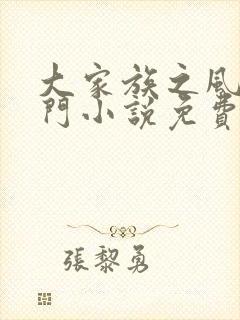 大家族之風
門小說免費
張黎勇